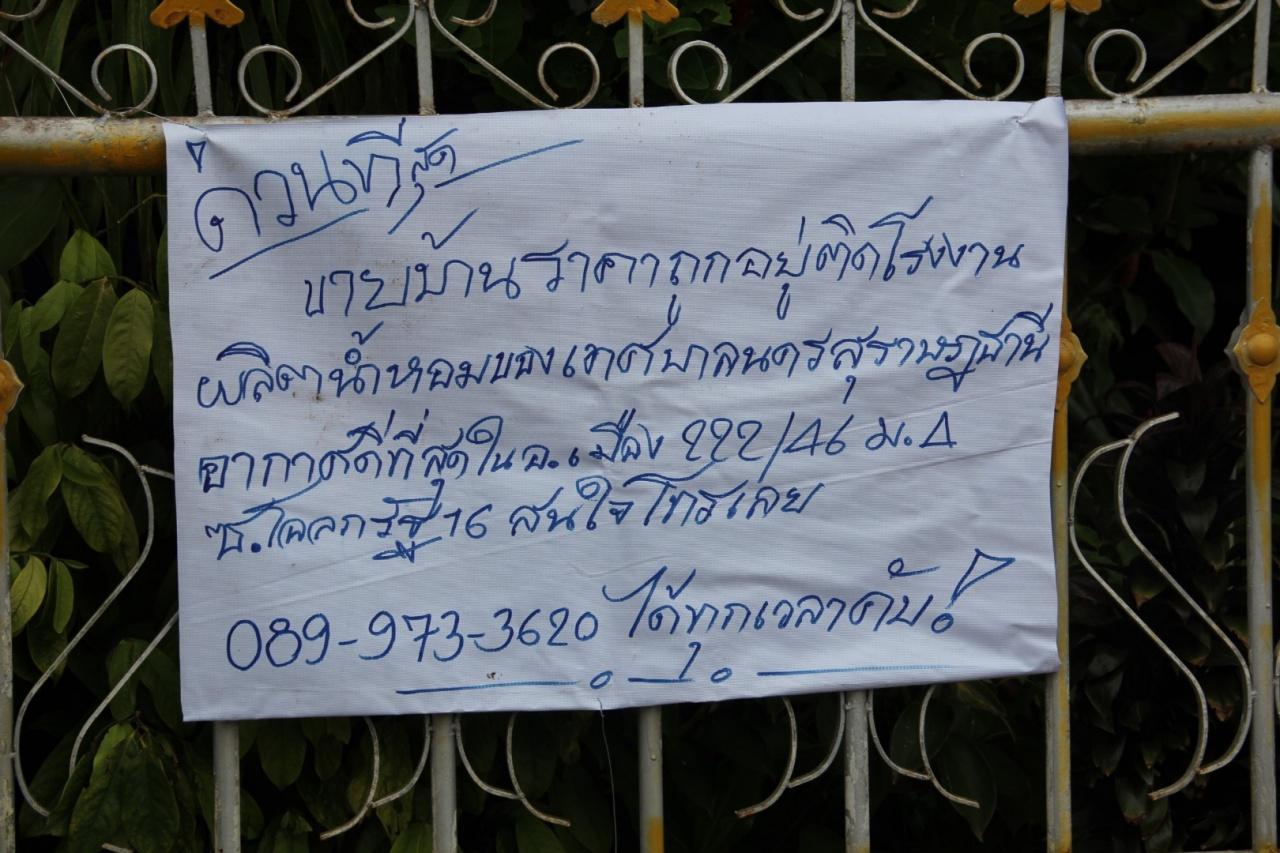 ด่วนที่สุด
ขายบ้านราคาถูกอยู่ติดโรงงาน
ผลิตน้ำหอมของเทศบาลนครสุราษฎร์ธานี
อากาศดีที่สุดใน อ.เมือง 222/46 ม.4
ซ. 16 สนใจโทรเลย
089-973-3620 ได้ทุกเวลาคับ!